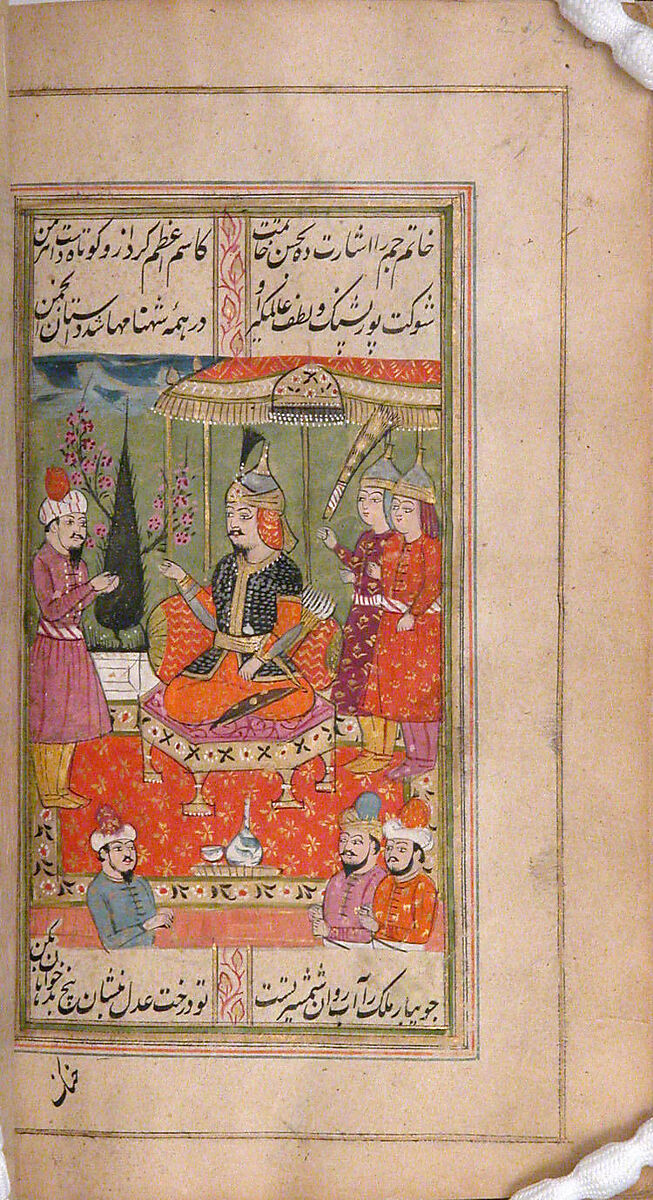 خاتم جم را اشارت ده بحسن خاتمت کاسم اعظم کرد ازو کوتاه دست اهرمن
شوکت پور پشنک و لطف عالمکیر او در همهٔ شهنامها شد داستان انجمن
جویبار ملک را آب روان شمشیر تست تو درخت عدل بنشان بیخ بدخواهان بکن